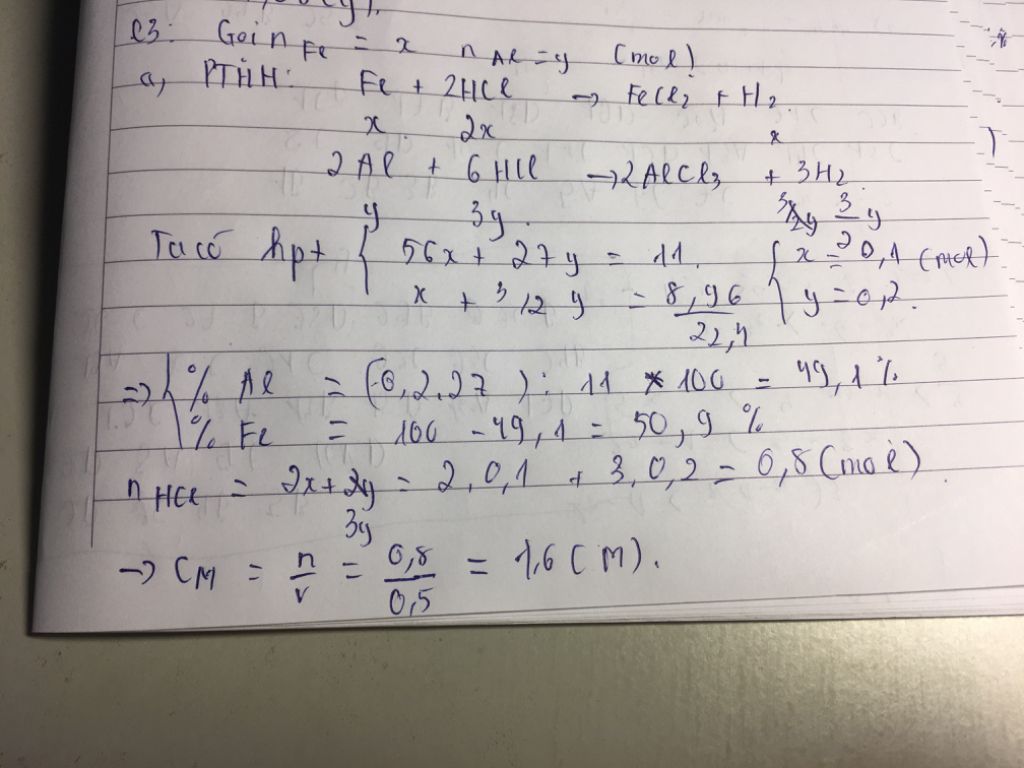 C3: Gọi n Fe = x n Al = y (mol)
a, PTHH: Fe + 2HCl → FeCl2 + H2.
x. 2x x
2Al + 6HCl → 2AlCl3 + 3H2
y 3y. 3/2 y
Ta có hpt { 56x + 27y = 11. { x = 0,1 (mol)
x + 3/2 y = 8,96/22,4 y = 0,2.
=> { % Al = (0,2.27) : 11 * 100 = 49,1 %
% Fe = 100 - 49,1 = 50,9 %
n HCl = 2x + 3y = 2.0,1 + 3.0,2 = 0,8 (mol)
→ CM = n/v = 0,8/0,5 = 1,6 (M).